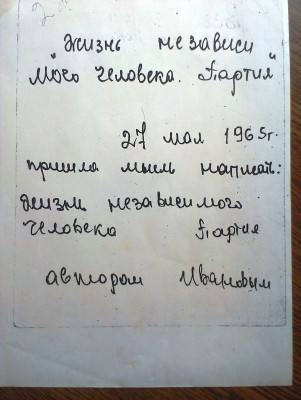 "Жизнь независи
мого человека. Партия"
27 мая 1965г.
пришла мысль написать:
Жизнь независимого
человека Партия
автором Ивановым